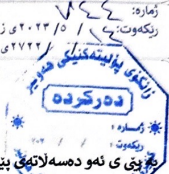 ژمارە: ٨٤٤
ڕێکەوت: ١٤ / ٥ / ٢٠٢٣ ی ز
٢٧٢٢ ی
زانکۆی پۆلیتەکنیکی هەولێر
دەرکردە
ژمارە :
ڕێکەوت :
بە پێ ی ئەو دەسەڵاتەی پێ